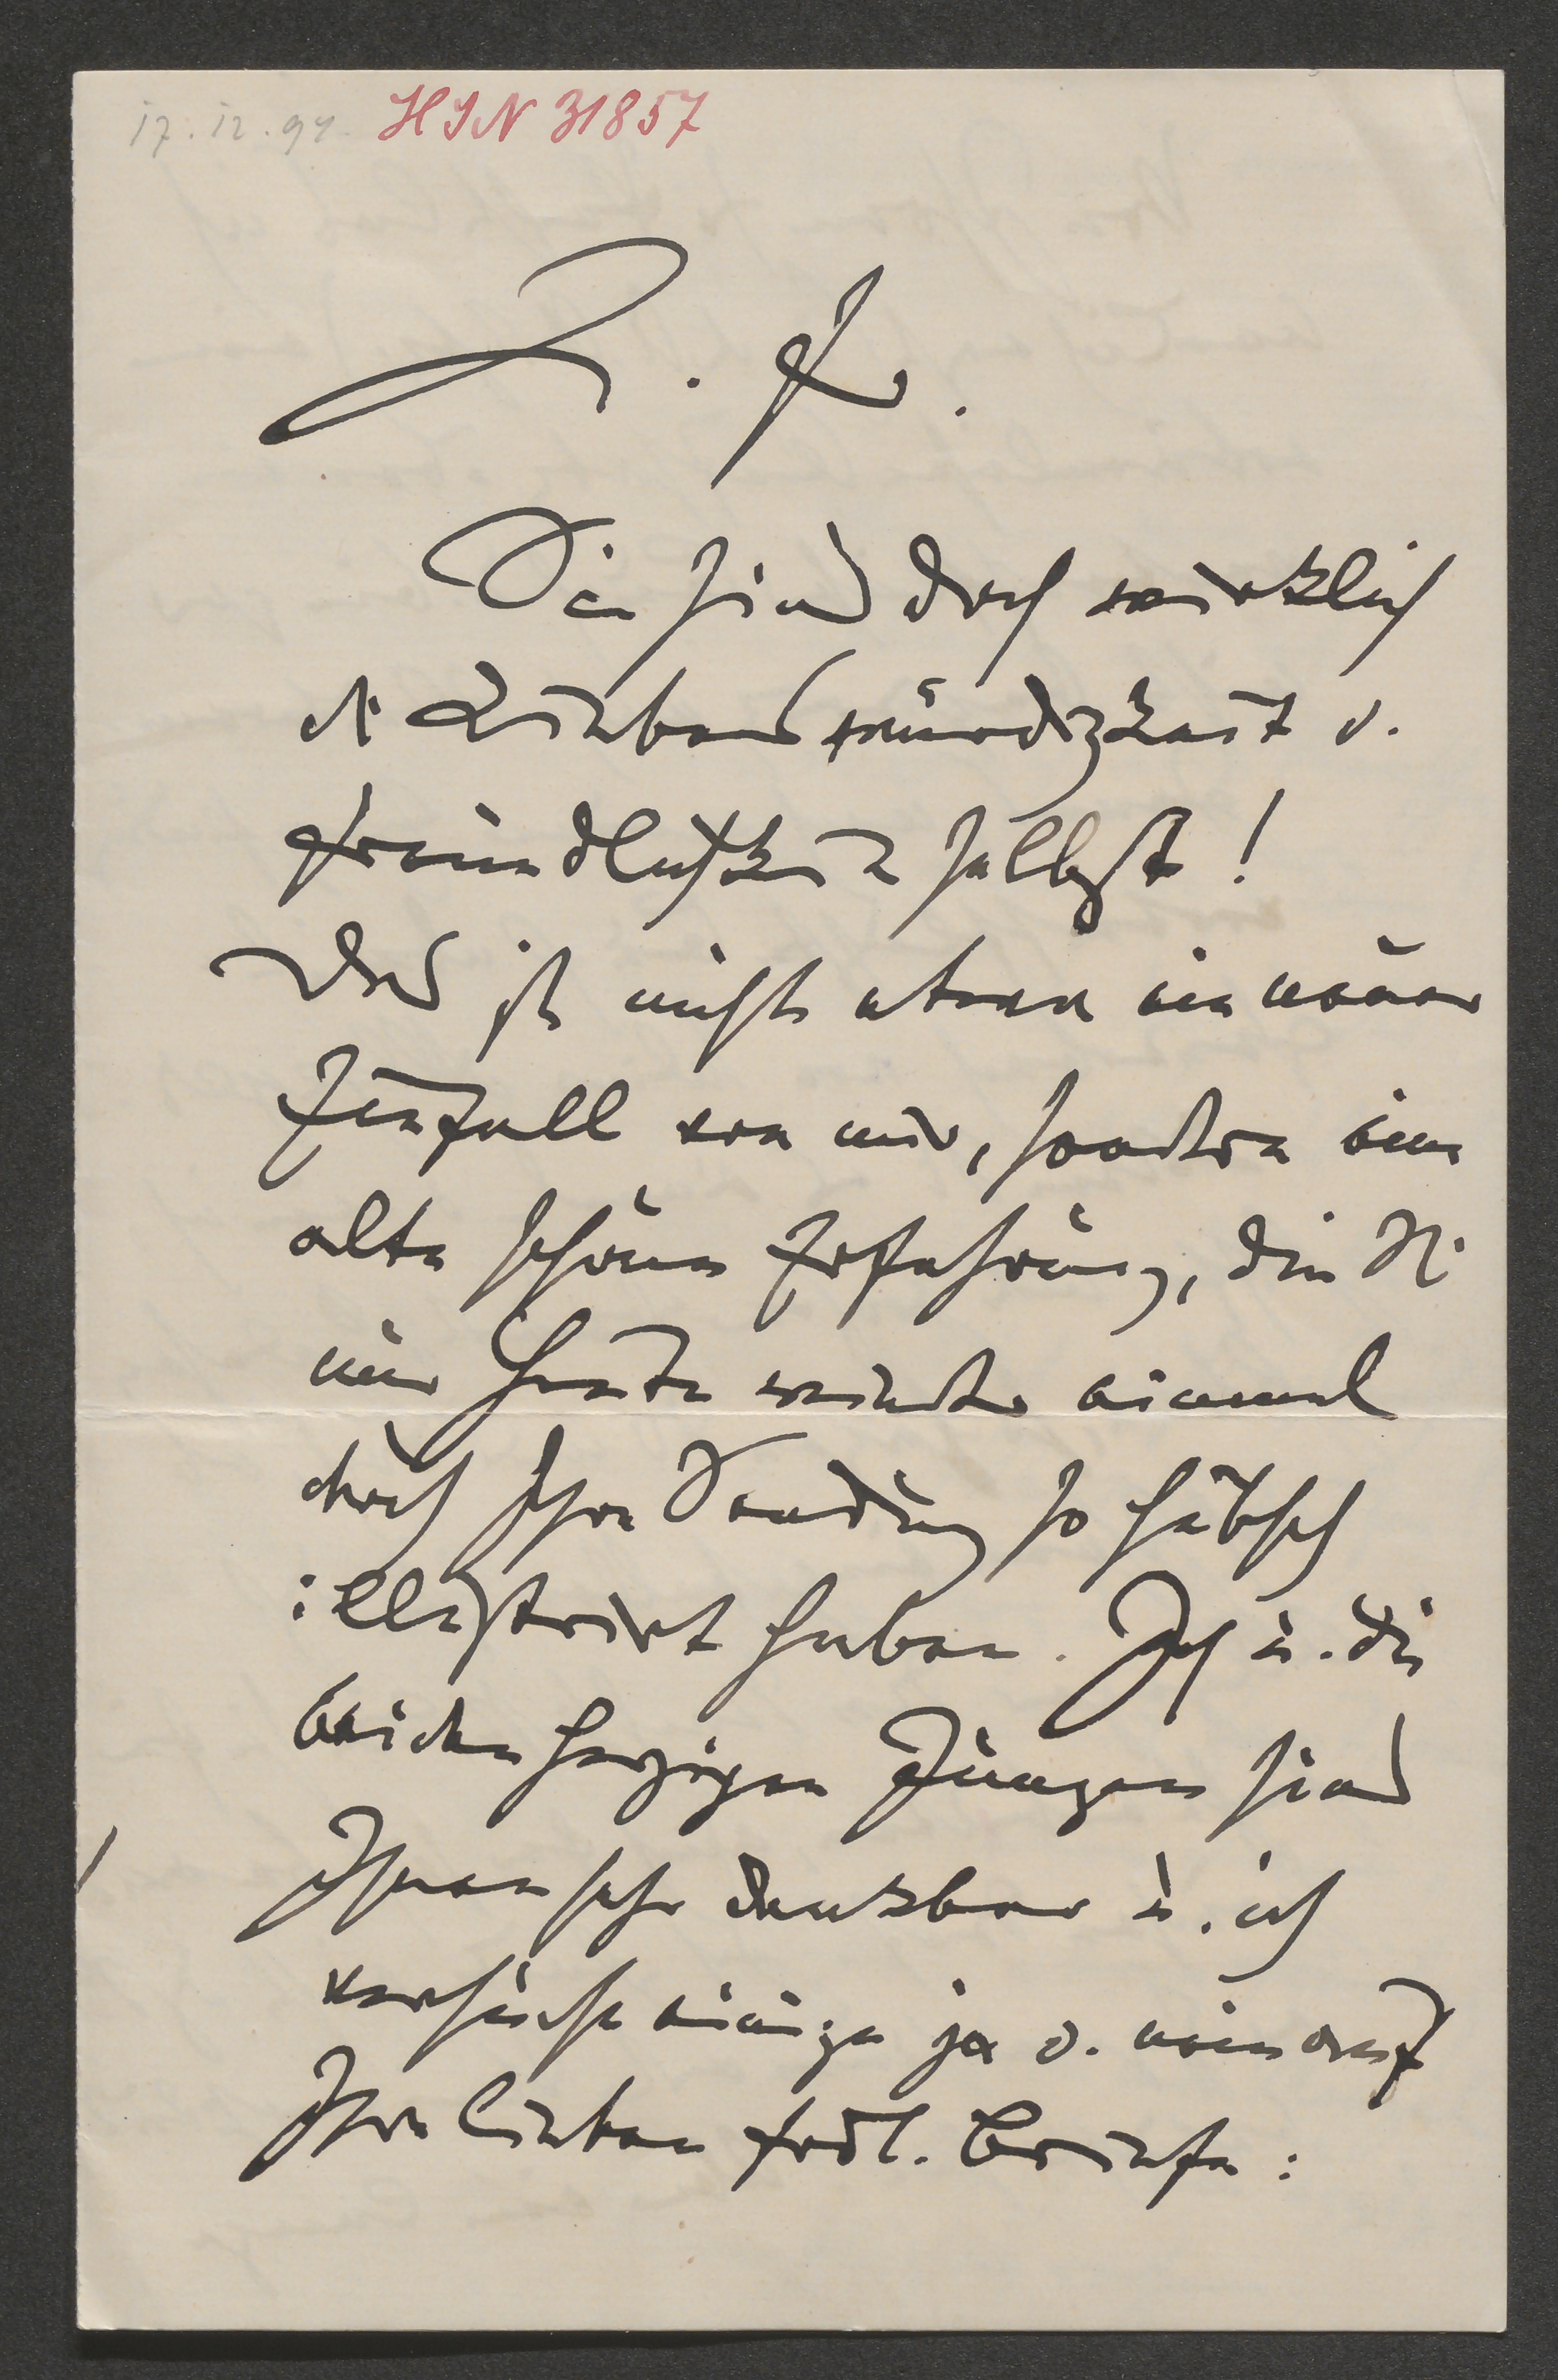 17.12.94. HIN 31857
L. Fr.
Sie sind doch wirklich
die Liebenswürdigkeit u.
Freundlichkeit selbst!
Das ist nicht etwa ein neuer
Einfall von mir, sondern eine
alte schöne Erfahrung, die Sie
mir heute wieder einmal
durch Ihre Sendung so hübsch
illustrirt haben. Ich u. die
beiden herzigen Jungens sind
Ihnen sehr dankbar u. ich
versuche einige ja u. nein auf
Ihre lieben frdl. Briefe: